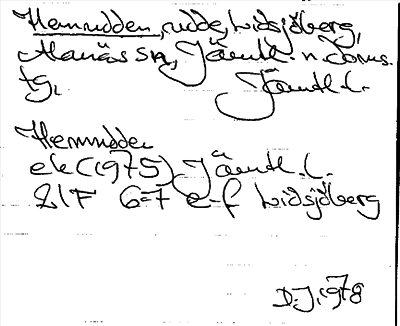 Hemrudden, udde, Lidsjöberg,
Alanäs sn, Jämtl. n. doms.
tg, Jämtl. l.
Hemrudden
ek (1975) Jämtl. l.
21F 6-7 e-f Lidsjöberg
D.J. 1978